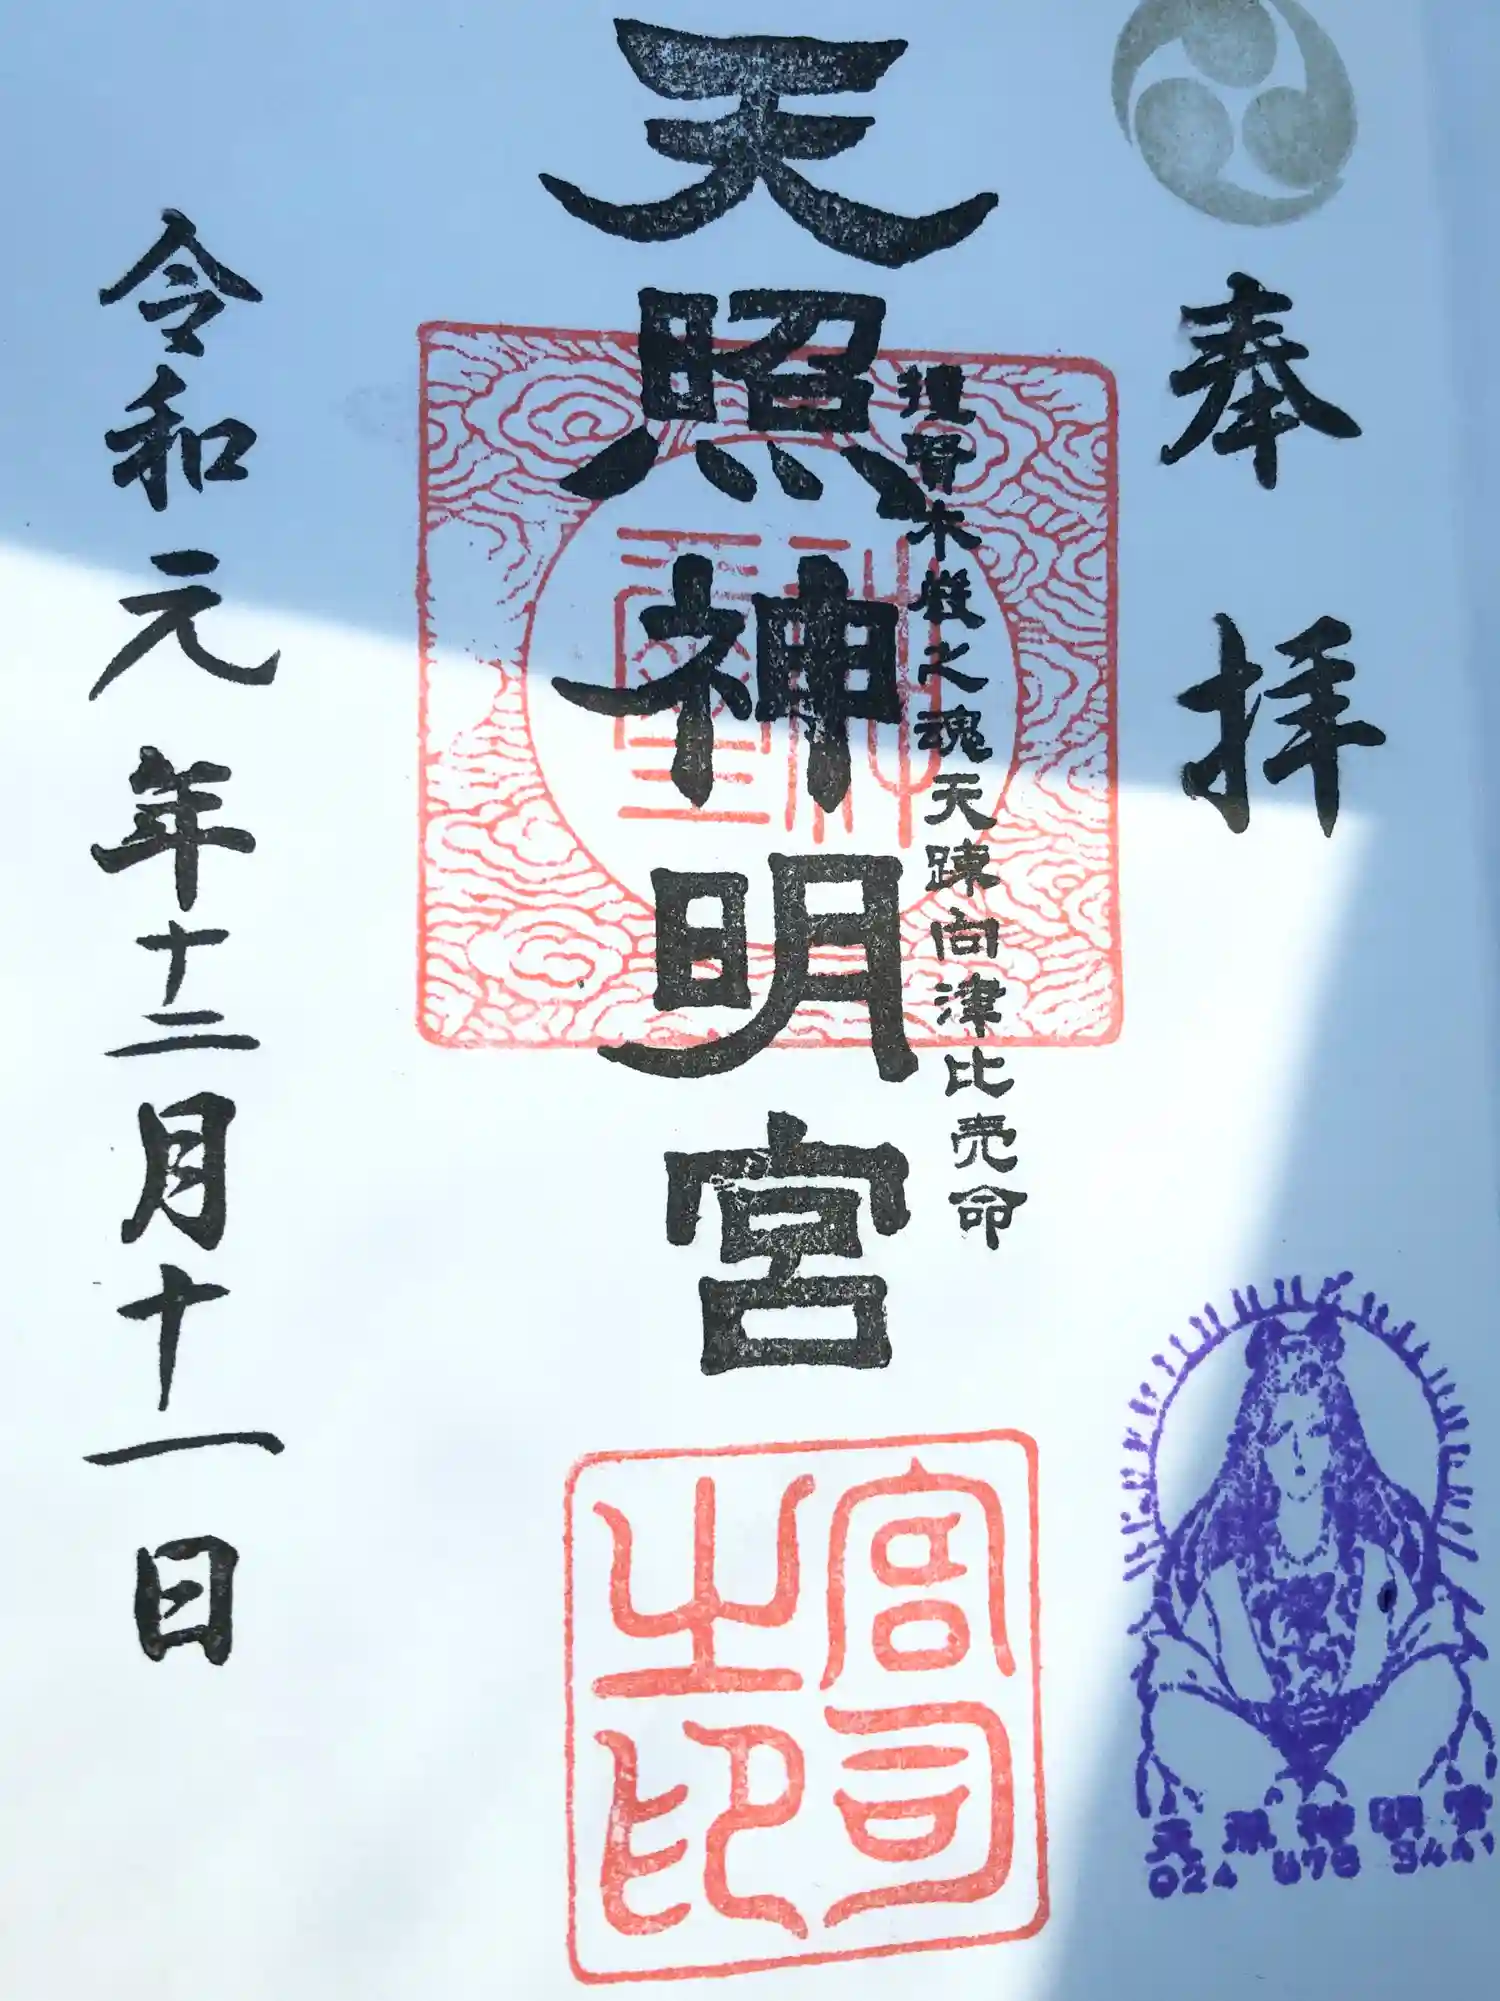 奉拝
撞賢木厳之魂天疎向津比売命
天照神明宮
令和元年十二月十一日
宮司
之印
天照神明宮